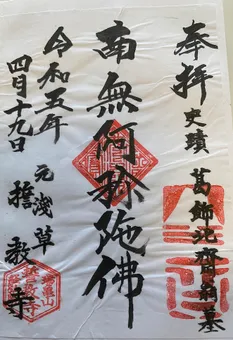 奉拝
史蹟 葛飾北齋翁墓
南無阿弥陀佛
令和五年
四月十九日
元浅草
誓教寺